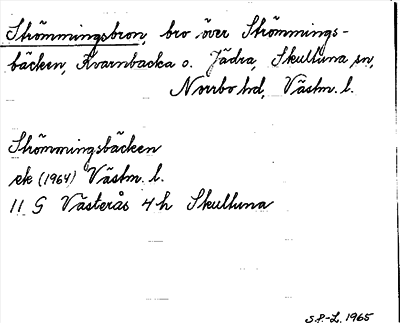 Strömmingsbron, bro över Strömmings-
bäcken, Kvarnbacka o. Jädra, Skultuna sn,
Norrbo hd, Västm. l.
Strömmingsbäcken
ek (1964) Västm. l.
11 G Västerås 4 h Skultuna
S.P.-L. 1965